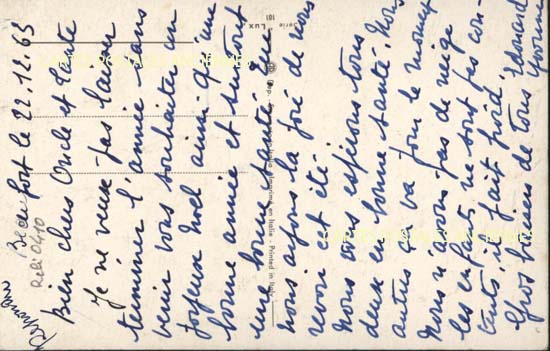 Beaufort le 22.12.63
Bien chers Oncle et Tante
Je ne veux pas laisser
terminer l'année sans
venir vous souhaiter un
joyeux Noël ainsi qu'une
bonne année et surtout
une bonne santé. Que
nous ayons la joie de vous
revoir cet été.
Nous vous espérons tous
deux en bonne santé. Nous
autres ça va pour le moment
Nous n'avons pas de neige
les enfants ne sont pas con-
tents, il fait froid.
Gros baisers de tous Edouard
Yvonne
Serie Lux
181
Printed in Italy